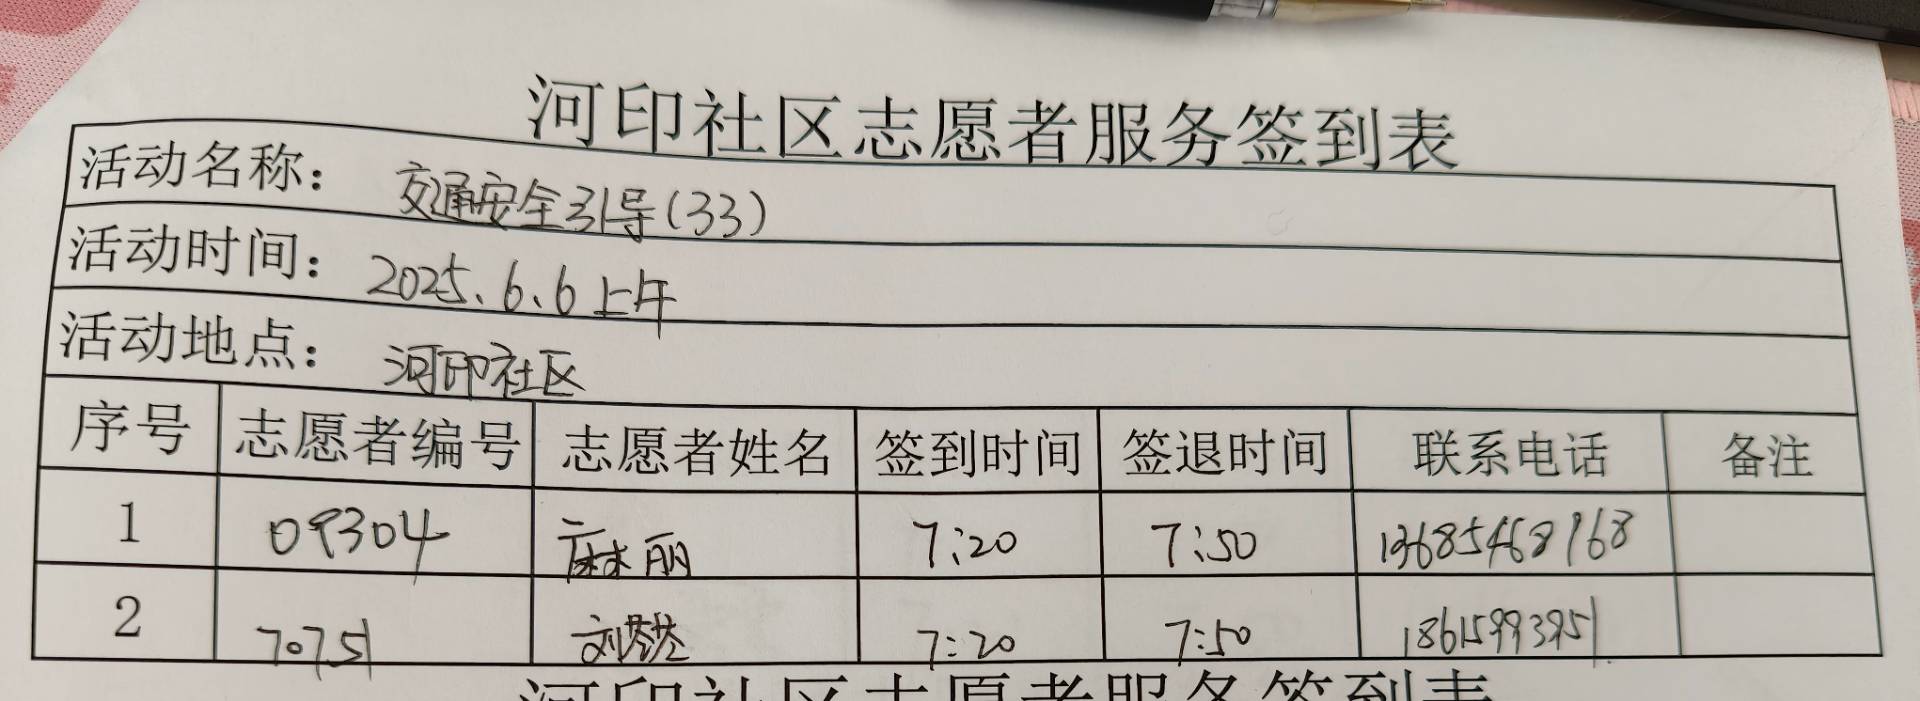 河印社区志愿者服务签到表
活动名称： 交通安全引导(33)
活动时间： 2025.6.6上午
活动地点： 河印社区
序号 志愿者编号 志愿者姓名 签到时间 签退时间 联系电话 备注
1 09304 麻丽 7:20 7:50 13685468968
2 70751 刘 7:20 7:50 18615993951
河印社区志愿者服务签到表